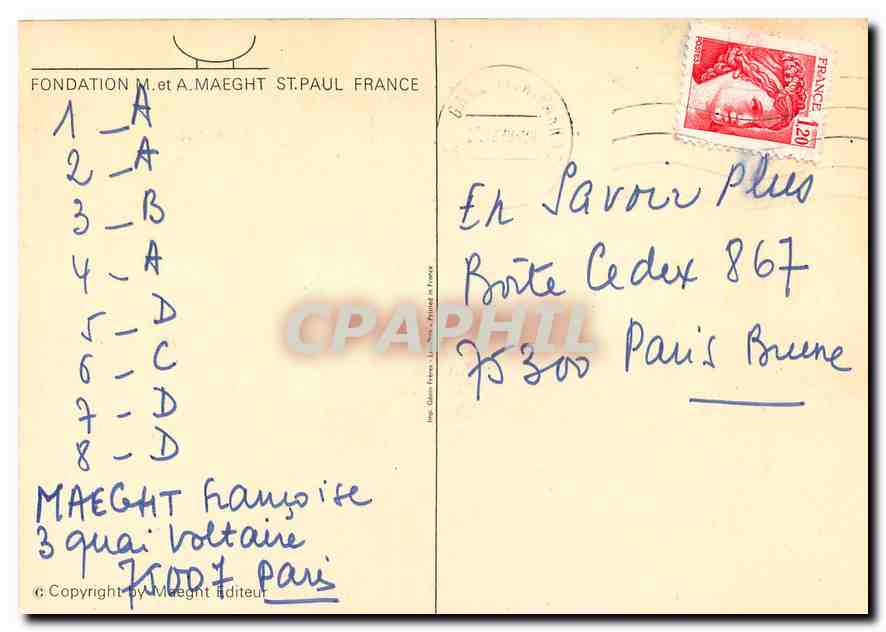 FONDATION M. et A. MAEGHT ST. PAUL FRANCE
1 _ A
2 _ A
3 _ B
4 _ A
5 _ D
6 _ C
7 _ D
8 _ D
MAEGHT Françoise
3 quai Voltaire
75007 Paris
© Copyright by Maeght Editeur
Printed in France
Imp. Frères
POSTES
FRANCE
1,20
En Savoir Plus
Boîte Cedex 867
75300 Paris Brune
CPAPHIL